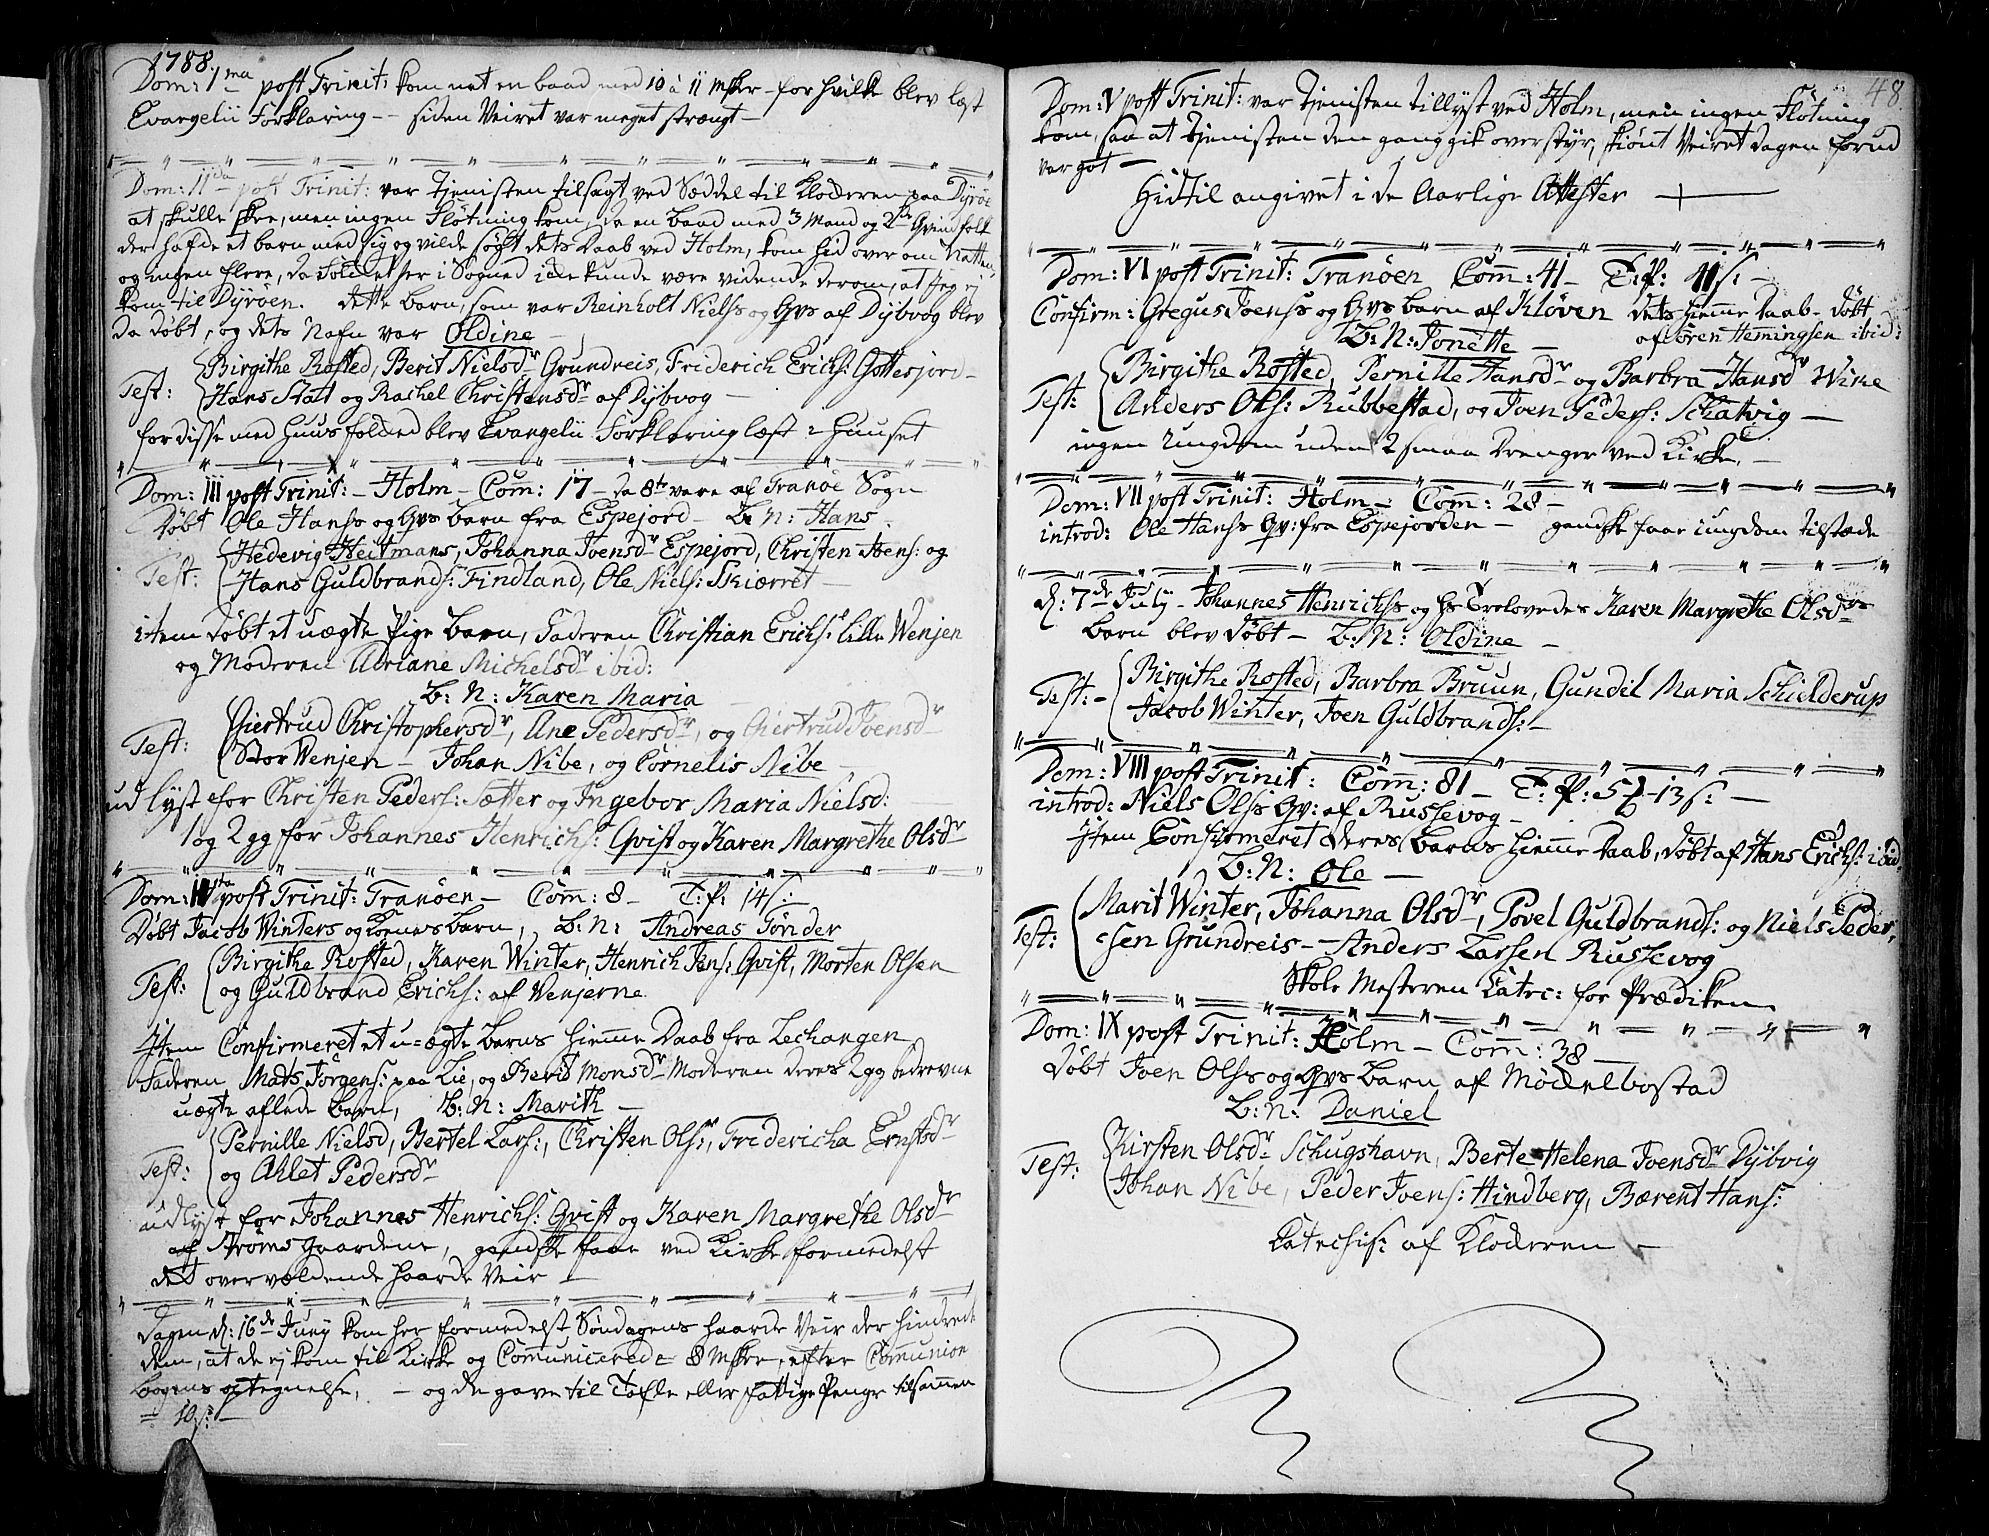 1788.
Dom: 1ma post Trinit: kom net en baad med 10 a 11 Msker - for hvilke blev læst
Evangelii Forklaring -- siden Veiret var meget strængt -
Dom: IIda post Trinit: var tjenisten tilsagt ved Sæddel til Kloderen paa Dyröe
at skulle skee, men ingen Flötning kom, da en baad med 3 Mand og 2de Qvindfolk
der hafde et barn med sig og vilde søgt dets Daab ved Holm, kom hid over om Natten,
og ingen flere, da Folket her i Sognet icke kunde være vidende derom, at Jeg ej
kom til Dyröen. Dette barn, som var Reinholt Nielss og Qvs af Dybvog blev
da døbt, og dets Nafn var Oldine -
Test: Birgithe Rosted, Berit Nielsdr Grundreis, Friderich Erichs: Gottesjord -
Hans Stalt og Rachel Christensdr af Dybvog -
for disse med Huusfolcket blev Evangelii Forklaring læst i Huuset
Dom: III post Trinit: - Holm - Com: 17 - da 8te vare af Tranöe Sogn
Døbt Ole Hanss og Qvs barn fra Espejord - B. N: Hans.
Test: Hedevig Heitmans, Johanna Joensdr Espejord, Christen Joens: og
Hans Guldbrands: Findland, Ole Niels: Skiærret -
item døbt et uægte Pige barn, Faderen Christian Erichs: lille Wenjen
og Moderen Adriane Michelsdr ibid:
B: N: Karen Maria
Test: Giertrud Christophersdr, Ane Pedersdr, og Giertrud Joensdr
Stor Wenjen - Johan Nibe, og Cornelis Nibe -
udlyst for Christen Peders: Sætter og Ingebor Maria Nielsd:
1 og 2 gg for Johannes Henrichs: Qvist og Karen Margrethe Olsdr
Dom: IVta post Trinit: Tranöen - Com: 8 - T: P: 14 s: -
Døbt Jacob Winters og Konens barn, B: N: Andreas Tönder
Test: Birgithe Rosted, Karen Winter, Henrich Jens: Qvist, Morten Olsen
og Guldbrand Erichs: af Wenjerne
Item Confirmeret et u=ægte barns Hjemme Daab fra Lechangen
Faderen Mads Jörgens: paa Lie, og Berit Monsdr Moderen deres 2 gg bedrevne
uægte aflede barn, B: N: Marith -
Test: Pernille Nielsd, Bertel Lars:, Christen Ols:, Fridericha Ernstsdr
og Ahlet Pedersdr
udlyst for Johannes Henrichs: Qvist og Karen Margrethe Olsdr
af Ströms gaardene, gandske faae ved Kirke formedelst
det overvældende haarde Veir -
Dagen d: 16de Junij kom her formedelst Söndagens haarde Veir der hindrede
dem, at de ej kom til Kirke og Communicerede 8 Msker, efter Communion
bogens optegnelse, - og de gave til Tafle eller fattige Penge tilsammen
= 10 s: -
48.
Dom: V post Trinit: var tjenisten tillyst ved Holm, men ingen Flötning
kom, saa at tjenisten den gang gik overstyr, skiönt Veiret dagen forud
var got -
Hidtil angivet i de Aarlige Attester
Dom: VI post Trinit: Tranöen Com: 41 - T: P: 11 s: -
Confirm: Gregus Joenss og Qvs barn af Klöven dets hjemme Daab - döbt
B: N: Jonette - af Sören Hemingsen ibid:
Test: Birgithe Rosted, Pernille Hansdr og Barbra Hansdr Wike
Anders Ols: Rubbestad, og Joen Peders: Schatvig -
ingen ungdom uden 2 smaa Drenger ved Kirke. -
Dom: VII post Trinit: Holm - Com: 28 -
introd: Ole Hanss Qv: fra Espejorden - gandske faae ungdom tilstæde
d: 7de July - Johannes Henrichss og hs Trolovedes Karen Margrethe Olsdrs
barn blev döbt - B: N: Oldine -
Test: - Birgithe Rosted, Barbra Bruun, Gundel Maria Schielderup
Jacob Winter, Joen Guldbrands: -
Dom: VIII post Trinit: Com: 81 - T: P: 5 - 13 s: -
introd: Niels Olss Qv: af Russevog -
Item Confirmeret deres barns Hjemme Daab, döbt af Hans Erichs: ibid:
B: N: Ole -
Test: Marit Winter, Johanna Olsdr, Povel Guldbrands: og Niels Peder,
sen Grundreis - Anders Larsen Russevog
Skole Mesteren Catec: for Prædiken
Dom: IX post Trinit: Holm - Com: 38 -
Döbt Joen Olss og Qvs barn af Möckelbostad
B: N: Daniel
Test: Kirsten Olsdr Schugshavn, Berte Helena Joensdr Dybvig
Johan Nibe, Peder Joens: Hindberg, Bærent Hans:
Catechis: af Kloderen -